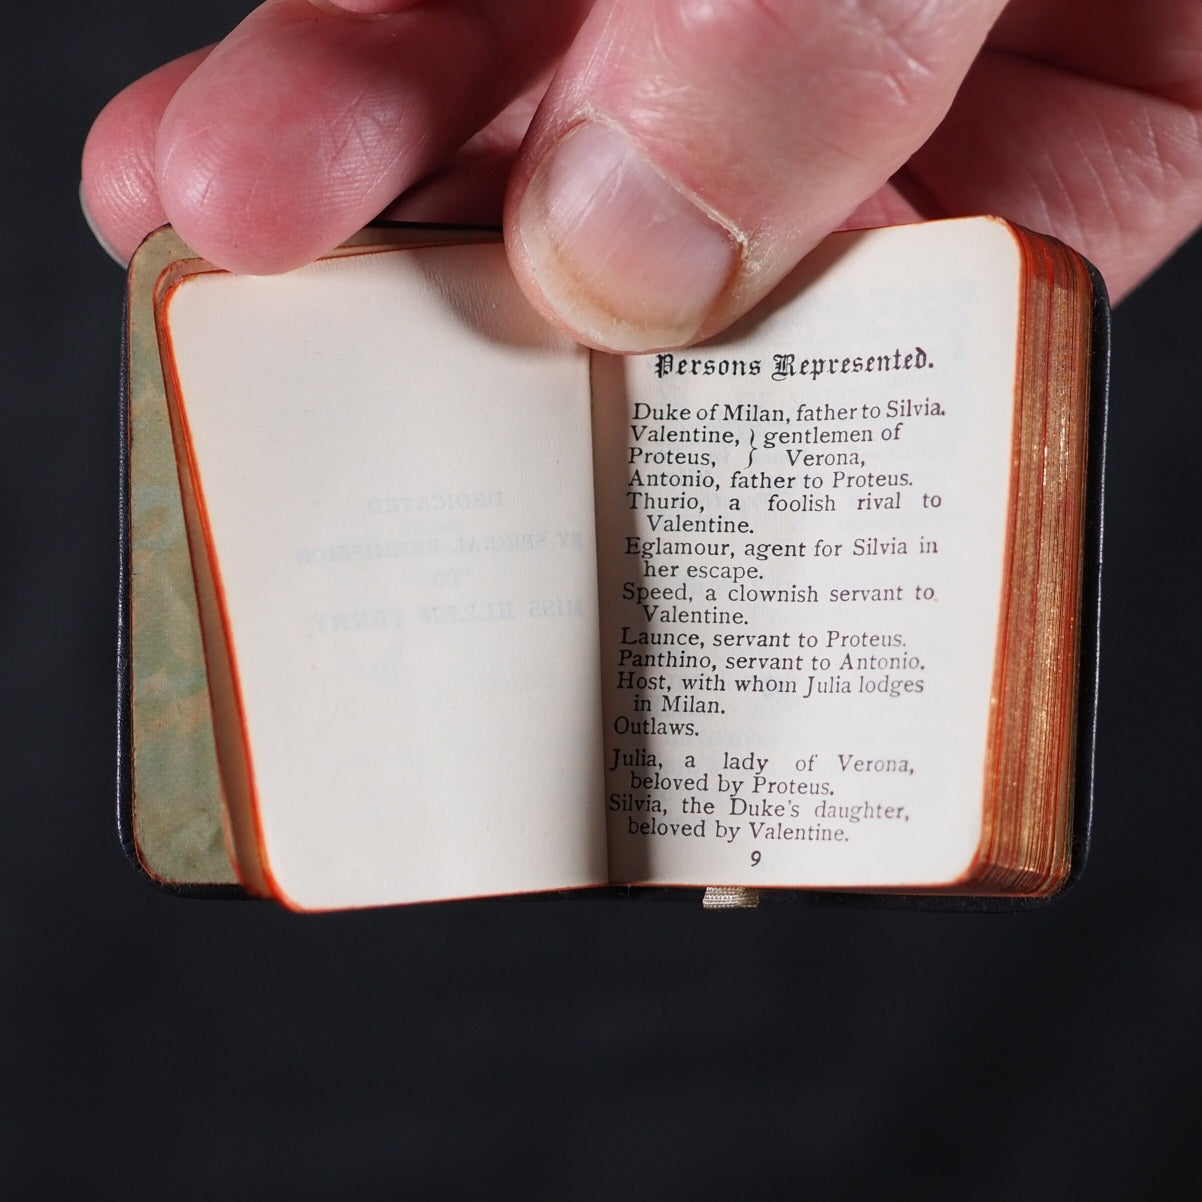 DEDICATED
BY SPECIAL PERMISSION
TO
MISS ELLEN TERRY.
Persons Represented.
Duke of Milan, father to Silvia.
Valentine, } gentlemen of
Proteus, } Verona,
Antonio, father to Proteus.
Thurio, a foolish rival to
Valentine.
Eglamour, agent for Silvia in
her escape.
Speed, a clownish servant to
Valentine.
Launce, servant to Proteus.
Panthino, servant to Antonio.
Host, with whom Julia lodges
in Milan.
Outlaws.
Julia, a lady of Verona,
beloved by Proteus.
Silvia, the Duke's daughter,
beloved by Valentine.
9